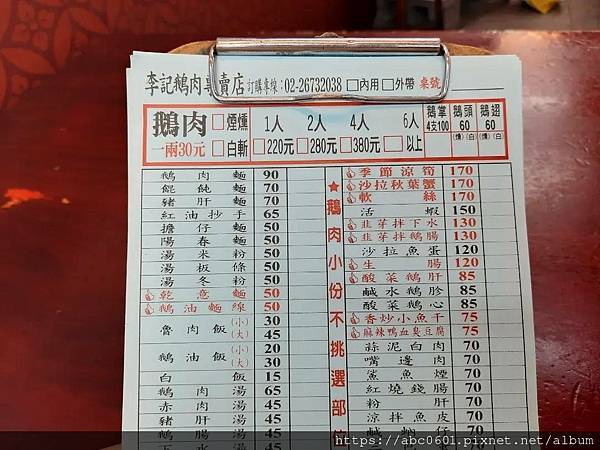 李記鵝肉專賣店 訂購專線:02-26732038 □內用 □外帶 桌號
鵝肉 □煙燻 □白斬
一兩30元
1人 2人 4人 6人
□220元 □280元 □380元 □以上
鵝掌 4支100
鵝頭 60 (燻)(白)
鵝翅 60 (燻)(白)
鵝肉麵 90
餛飩麵 70
豬肝麵 70
紅油抄手 65
擔仔麵 50
陽春麵 50
湯米粉 50
湯板條 50
湯冬粉 50
乾意麵 50
鵝油麵線 50
魯肉飯 (小) 30
(大) 45
鵝油飯 (小) 20
(大) 30
白飯 15
鵝肉湯 65
赤肉湯 45
豬肝湯 45
鵝腸湯 45
下水湯 45
★鵝肉小份不挑選部位
季節涼筍 170
沙拉秋葉蟹 170
軟絲 170
活蝦 150
韭芽拌下水 130
韭芽拌鵝腸 130
沙拉魚蛋 120
生腸 120
酸菜鵝肝 85
鹹水鵝胗 85
酸菜鵝心 85
香炒小魚干 75
麻辣鴨血臭豆腐 75
蒜泥白肉 70
嘴邊肉 70
鯊魚煙 70
紅燒錢腸 70
粉肝 70
涼拌魚皮 70
70
https://abc0601.pixnet.net/album